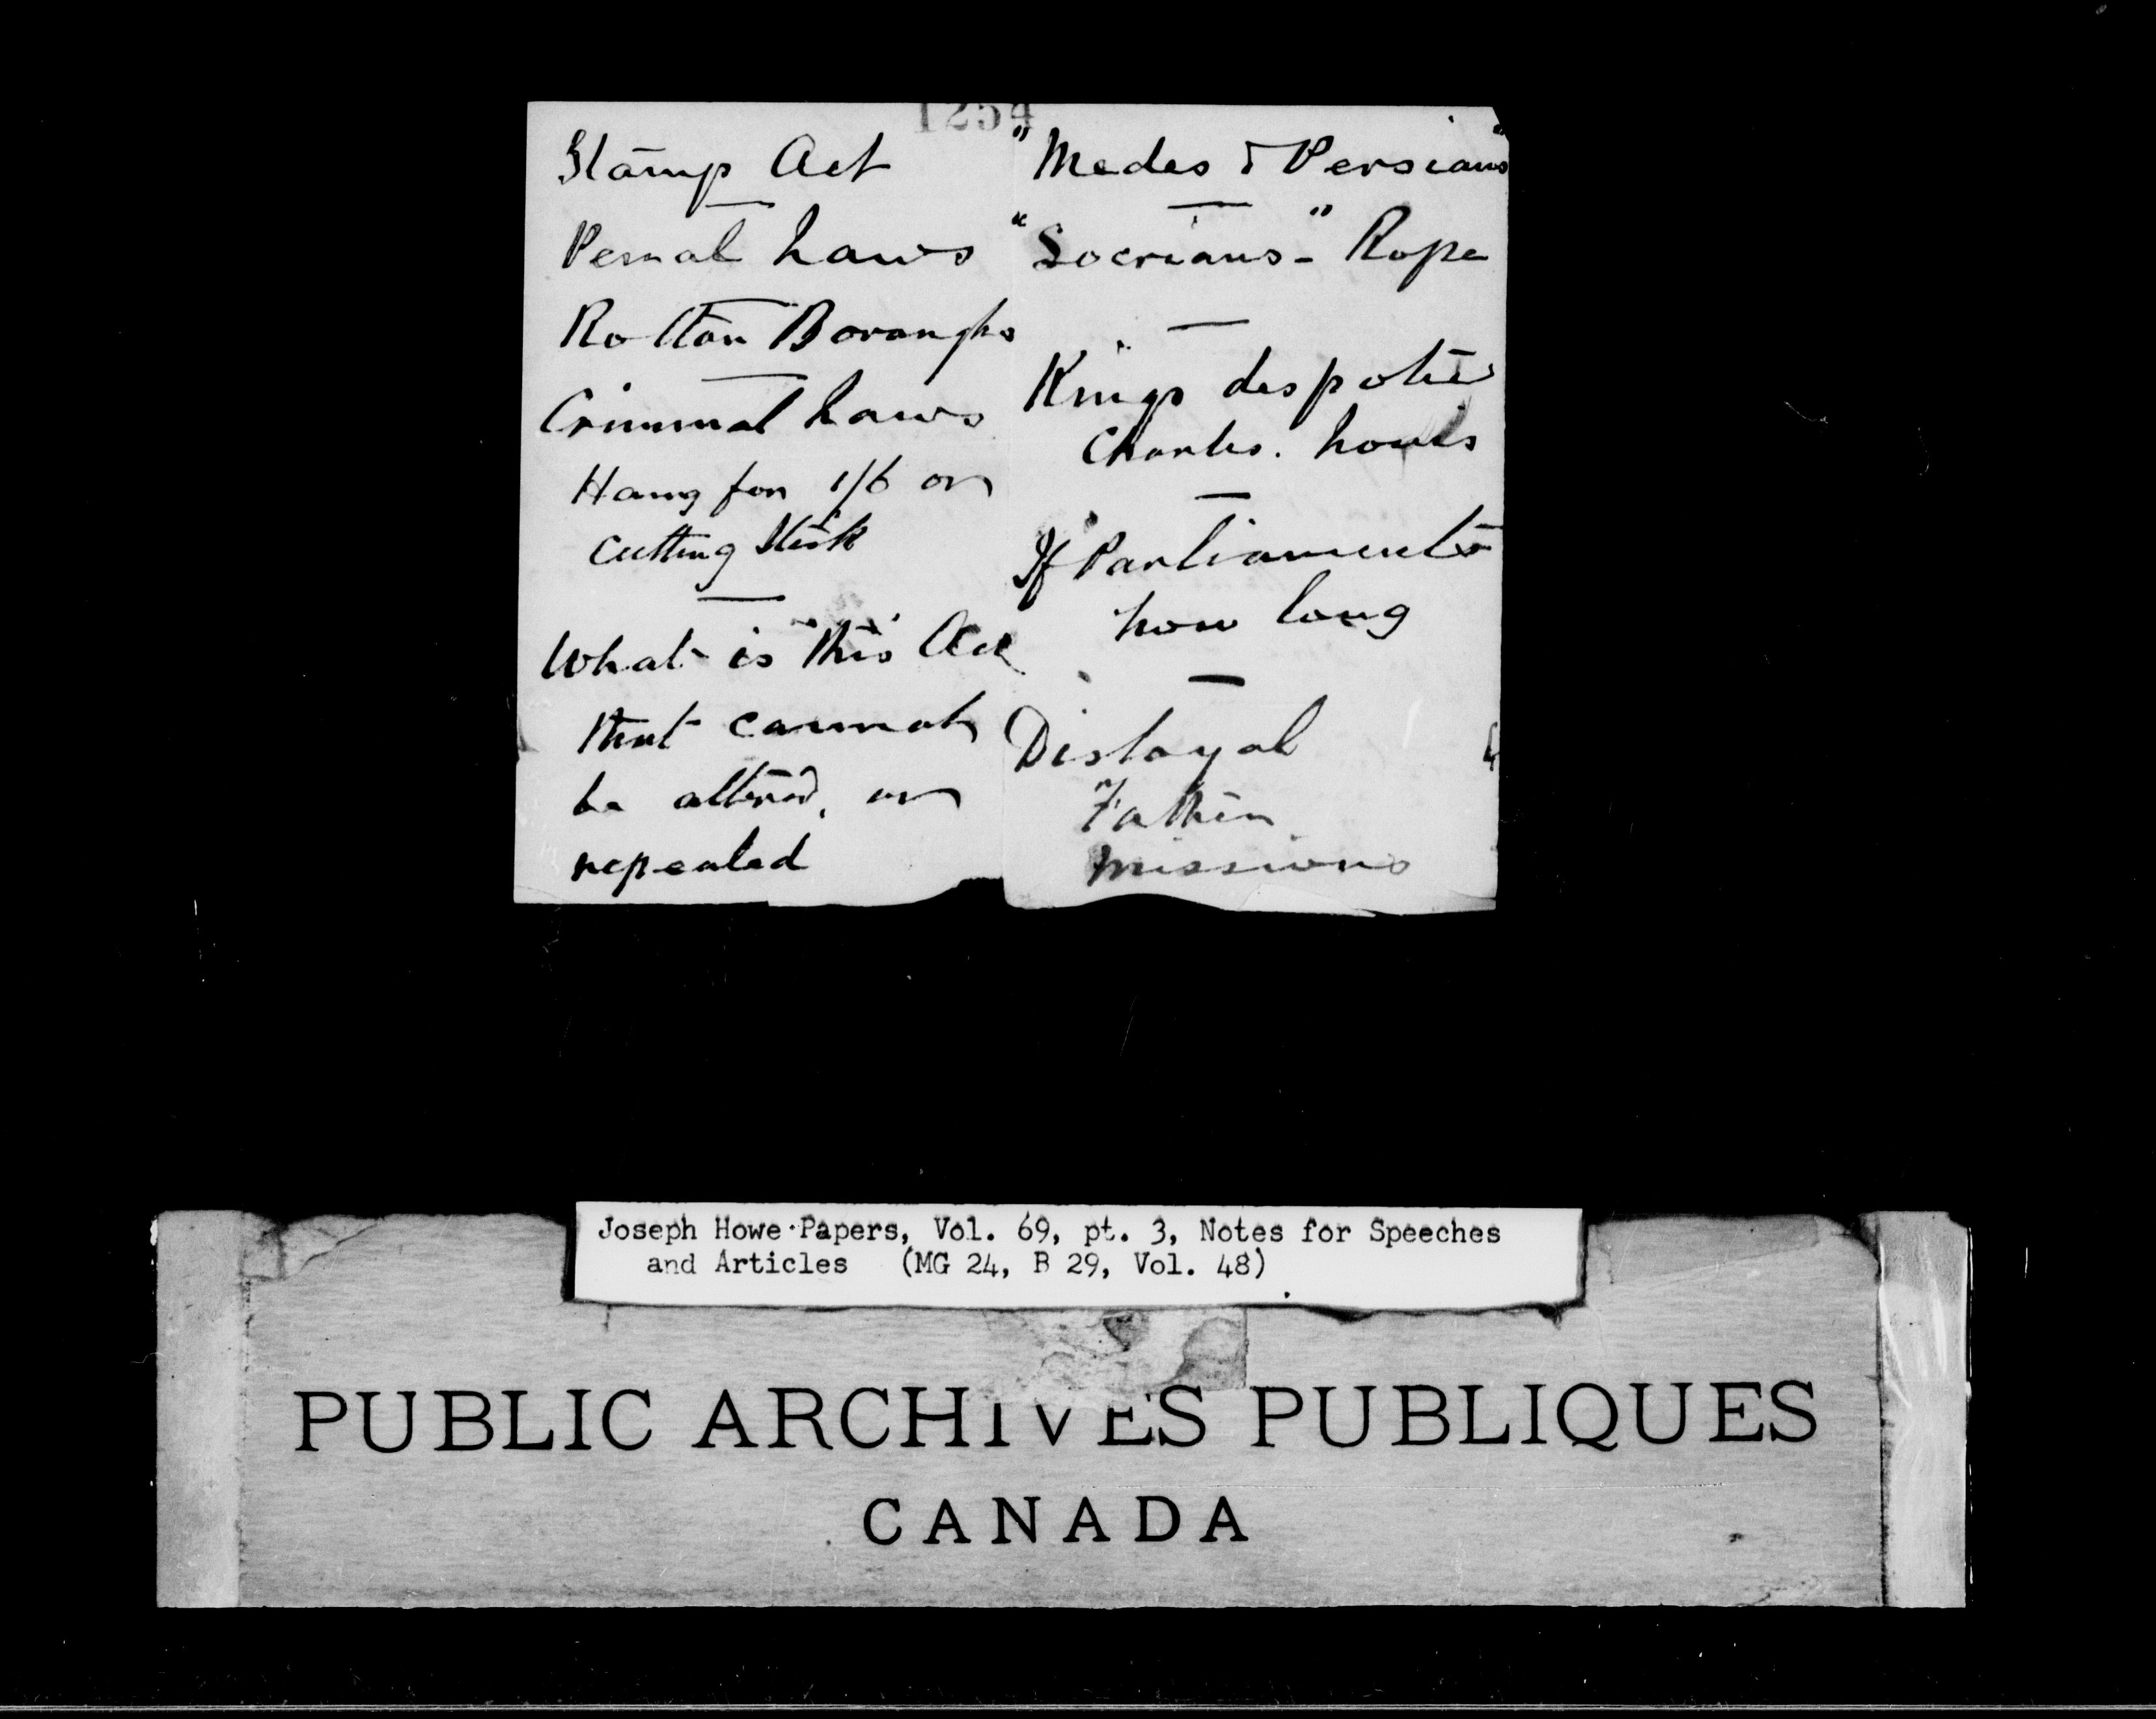 1254
Stamp Act
Penal Laws
Rotten Boroughs
Criminal Laws
Hang for 1/6 or
cutting stick
What is "this" Act
that cannot
be altered, or
repealed
"Medes & Persians"
"Locrians-" Rope
Kings despotic
Charles. Louis
If Parliaments
how long
Disloyal
Father
missions
Joseph Howe Papers, Vol. 69, pt. 3, Notes for Speeches
and Articles (MG 24, B 29, Vol. 48)
PUBLIC ARCHIVES PUBLIQUES
CANADA